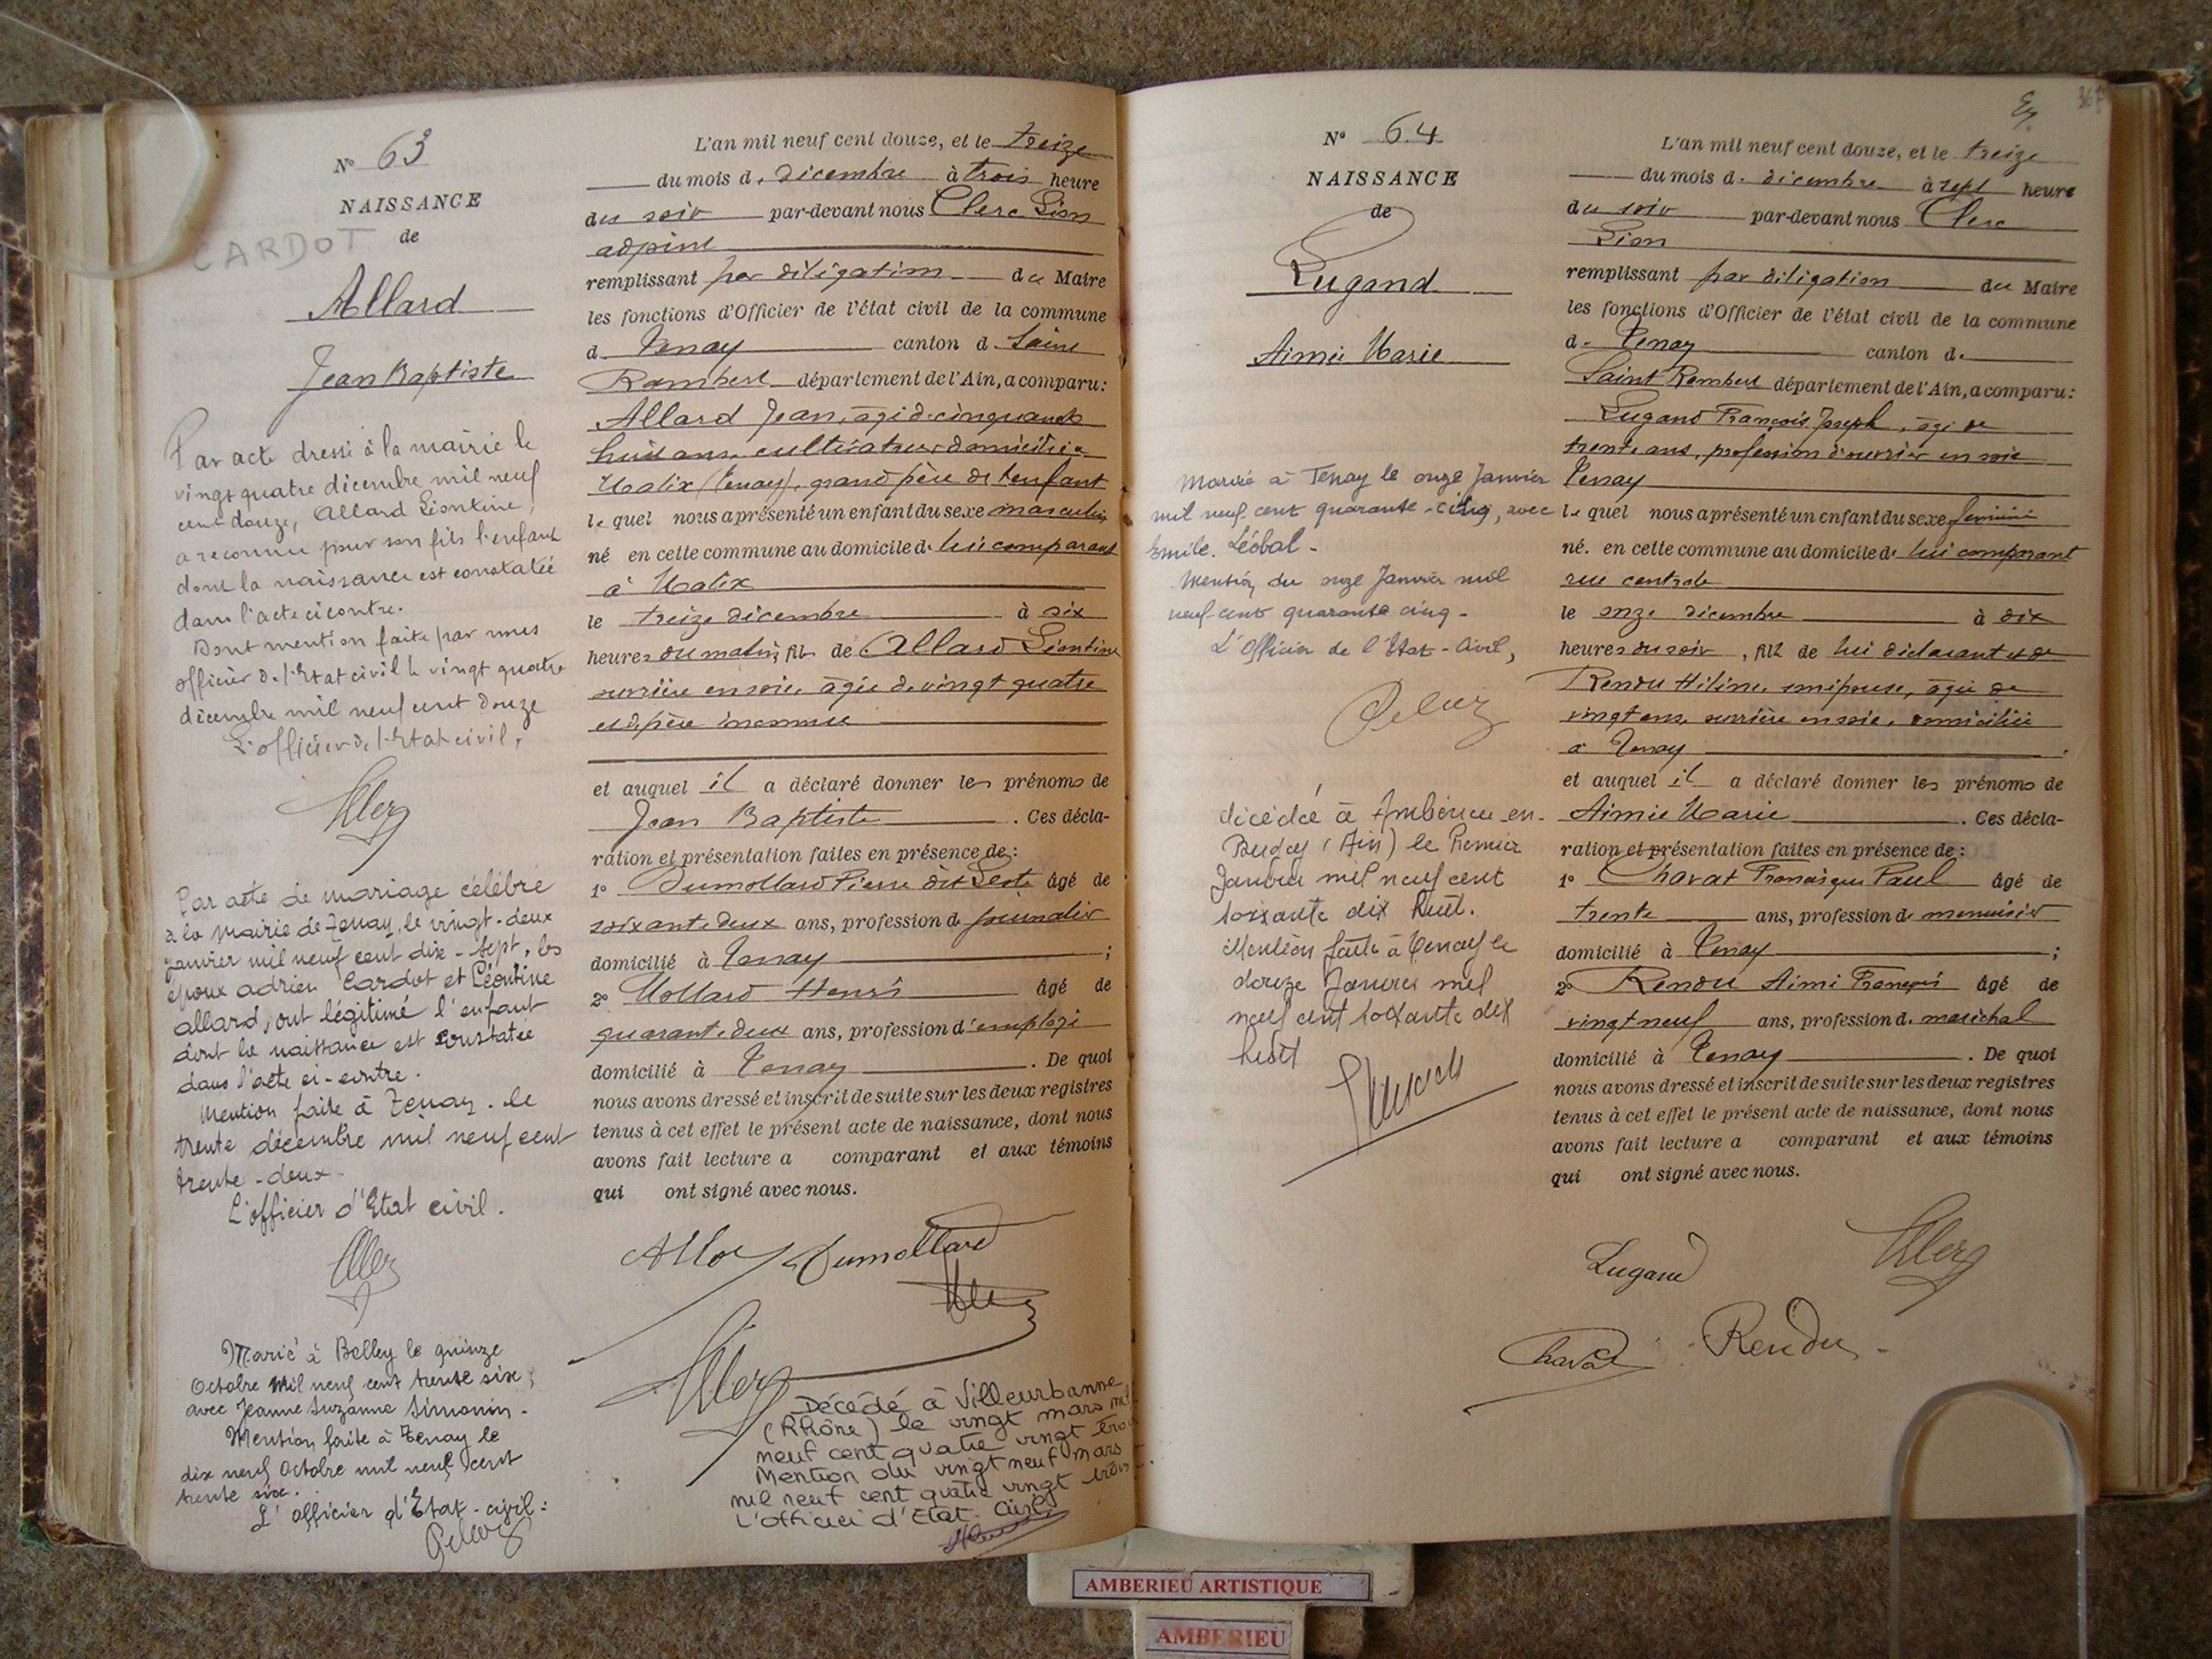 Nº 63
NAISSANCE
de
CARDOT
Allard
Jean Baptiste
Par acte dressé à la mairie le
vingt quatre décembre mil neuf
cent douze, Allard Léontine,
a reconnu pour son fils l'enfant
dont la naissance est constatée
dans l'acte ci contre.
Dont mention faite par nous
officier de l'Etat civil le vingt quatre
décembre mil neuf cent douze
L'officier de l'Etat civil,
Clerc
Par acte de mariage célébré
à la mairie de Tenay, le vingt-deux
janvier mil neuf cent dix-sept, les
époux adrien Cardot et Léontine
allard, ont légitimé l'enfant
dont la naissance est constatée
dans l'acte ci-contre.
Mention faite à Tenay. le
trente décembre mil neuf cent
trente-deux.
L'officier d'Etat civil.
Marié à Belley le quinze
Octobre mil neuf cent trente six,
avec Jeanne Suzanne Simonin.
Mention faite à Tenay le
dix neuf Octobre mil neuf cent
trente six.
L'officier d'Etat-civil:
L'an mil neuf cent douze, et le treize
du mois de décembre à trois heure
du soir par-devant nous Clerc Léon
adjoint
remplissant par délégation du Maire
les fonctions d'Officier de l'état civil de la commune
de Tenay canton de Saint
Rambert département de l'Ain, a comparu:
Allard Jean, âgé de cinquante
huit ans, cultivateur, domicilié à
Malix (Tenay), grand père de l'enfant
lequel nous a présenté un enfant du sexe masculin
né en cette commune au domicile de lui comparant
à Malix
le treize décembre à six
heures du matin, fils de Allard Léontine
ouvrière en soie, âgée de vingt quatre
et de père inconnu
et auquel il a déclaré donner les prénoms de
Jean Baptiste. Ces décla-
ration et présentation faites en présence de:
1º Dumollard Pierre dit âgé de
soixante deux ans, profession de journalier
domicilié à Tenay;
2º Mollard Henri âgé de
quarante deux ans, profession d'employé
domicilié à Tenay. De quoi
nous avons dressé et inscrit de suite sur les deux registres
tenus à cet effet le présent acte de naissance, dont nous
avons fait lecture a comparant et aux témoins
qui ont signé avec nous.
Dumollard
Clerc
Décédé à Villeurbanne
(Rhône) le vingt mars mil
neuf cent quatre vingt trois
Mention du vingt neuf mars
mil neuf cent quatre vingt trois.
L'officier d'Etat-Civil
367
Nº 64
NAISSANCE
de
Lugand
Aimée Marie
Mariée à Tenay le onze Janvier
mil neuf cent quarante-cinq, avec
Emile Léobal.
Mention du onze Janvier mil
neuf-cent quarante cinq.
L'Officier de l'Etat-Civil,
décédée à Ambérieu-en-
Bugey (Ain) le Premier
Janvier mil neuf cent
soixante dix huit.
Mention faite à Tenay le
douze Janvier mil
neuf cent soixante dix
huit
L'an mil neuf cent douze, et le treize
du mois de décembre à sept heure
du soir par-devant nous Clerc
Léon
remplissant par délégation du Maire
les fonctions d'Officier de l'état civil de la commune
de Tenay canton de
Saint Rambert département de l'Ain, a comparu:
Lugand François Joseph, âgé de
trente ans, profession d'ouvrier en soie
Tenay
lequel nous a présenté un enfant du sexe féminin
né. en cette commune au domicile de lui comparant
rue centrale
le onze décembre à dix
heures du soir, fille de lui déclarant et de
Rendu Hélène, son épouse, âgée de
vingt ans, ouvrière en soie, domiciliée
à Tenay
et auquel il a déclaré donner les prénoms de
Aimée Marie. Ces décla-
ration et présentation faites en présence de:
1º Chavat Francisque Paul âgé de
trente ans, profession de menuisier
domicilié à Tenay;
2º Rendu Aimé François âgé de
vingt neuf ans, profession de maréchal
domicilié à Tenay. De quoi
nous avons dressé et inscrit de suite sur les deux registres
tenus à cet effet le présent acte de naissance, dont nous
avons fait lecture a comparant et aux témoins
qui ont signé avec nous.
Lugand
Clerc
Chavat
Rendu
AMBERIEU ARTISTIQUE
AMBERIEU